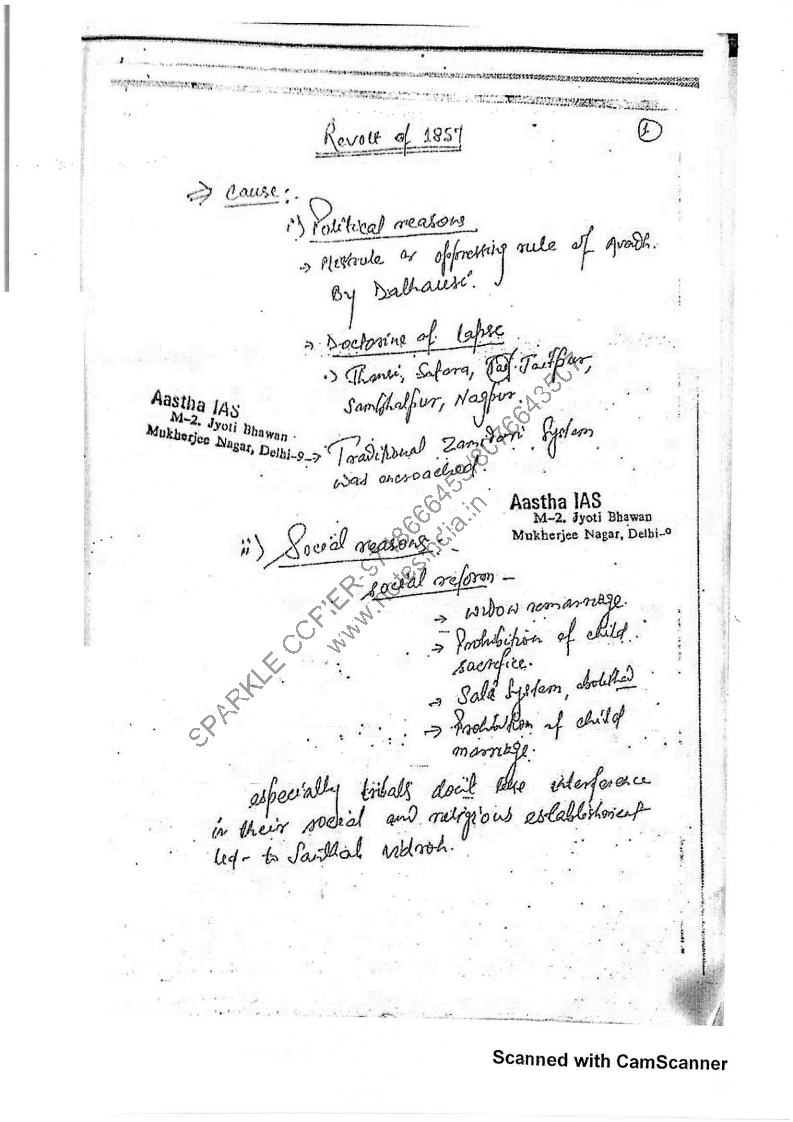 1
Revolt of 1857
⇒ Cause:-
i) Political reasons
→ Misrule or oppressing rule of Avadh.
By Dalhausi.
→ Doctorine of lapse
•) Jhansi, Satara, Jai Jaitpur,
Sambhalpur, Nagpur.
Aastha IAS
M-2. Jyoti Bhawan
Mukherjee Nagar, Delhi-9
→ Traditional Zamidari System
was encroached.
Aastha IAS
M-2. Jyoti Bhawan
Mukherjee Nagar, Delhi-9
ii) Social reasons:-
social reform -
→ widow remarriage.
→ Prohibition of child
sacrifice.
→ Sati System, abolished
→ Prohibition of child
marriage.
especially tribals don't like interference
in their social and religious establishment
led - to Santhal vidroh.
www.NotesIndia.in
Scanned with CamScanner